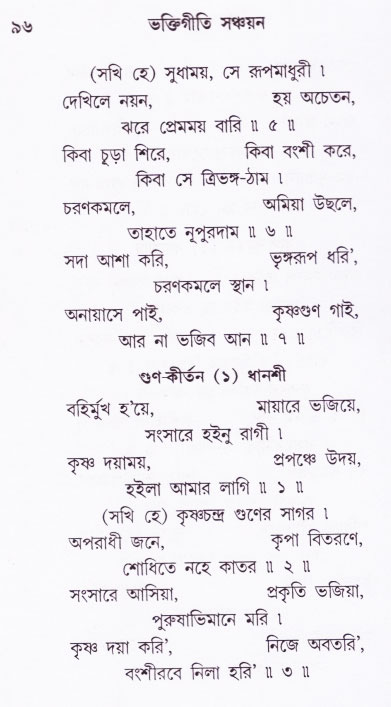 ৯৬ ভক্তিগীতি সঞ্চয়ন
(সখি হে) সুধাময়, সে রূপমাধুরী ।
দেখিলে নয়ন, হয় অচেতন,
ঝরে প্রেমময় বারি ॥ ৫ ॥
কিবা চূড়া শিরে, কিবা বংশী করে,
কিবা সে ত্রিভঙ্গ-ঠাম ।
চরণকমলে, অমিয়া উছলে,
তাহাতে নূপুরদাম ॥ ৬ ॥
সদা আশা করি, ভৃঙ্গরূপ ধরি',
চরণকমলে স্থান ।
অনায়াসে পাই, কৃষ্ণগুণ গাই,
আর না ভজিব আন ॥ ৭ ॥
গুণ-কীর্তন (১) ধানশী
বহির্মুখ হ'য়ে, মায়ারে ভজিয়ে,
সংসারে হইনু রাগী ।
কৃষ্ণ দয়াময়, প্রপঞ্চে উদয়,
হইলা আমার লাগি ॥ ১ ॥
(সখি হে) কৃষ্ণচন্দ্র গুণের সাগর ।
অপরাধী জনে, কৃপা বিতরণে,
শোধিতে নহে কাতর ॥ ২ ॥
সংসারে আসিয়া, প্রকৃতি ভজিয়া,
পুরুষাভিমানে মরি ।
কৃষ্ণ দয়া করি', নিজে অবতরি',
বংশীরবে নিলা হরি' ॥ ৩ ॥